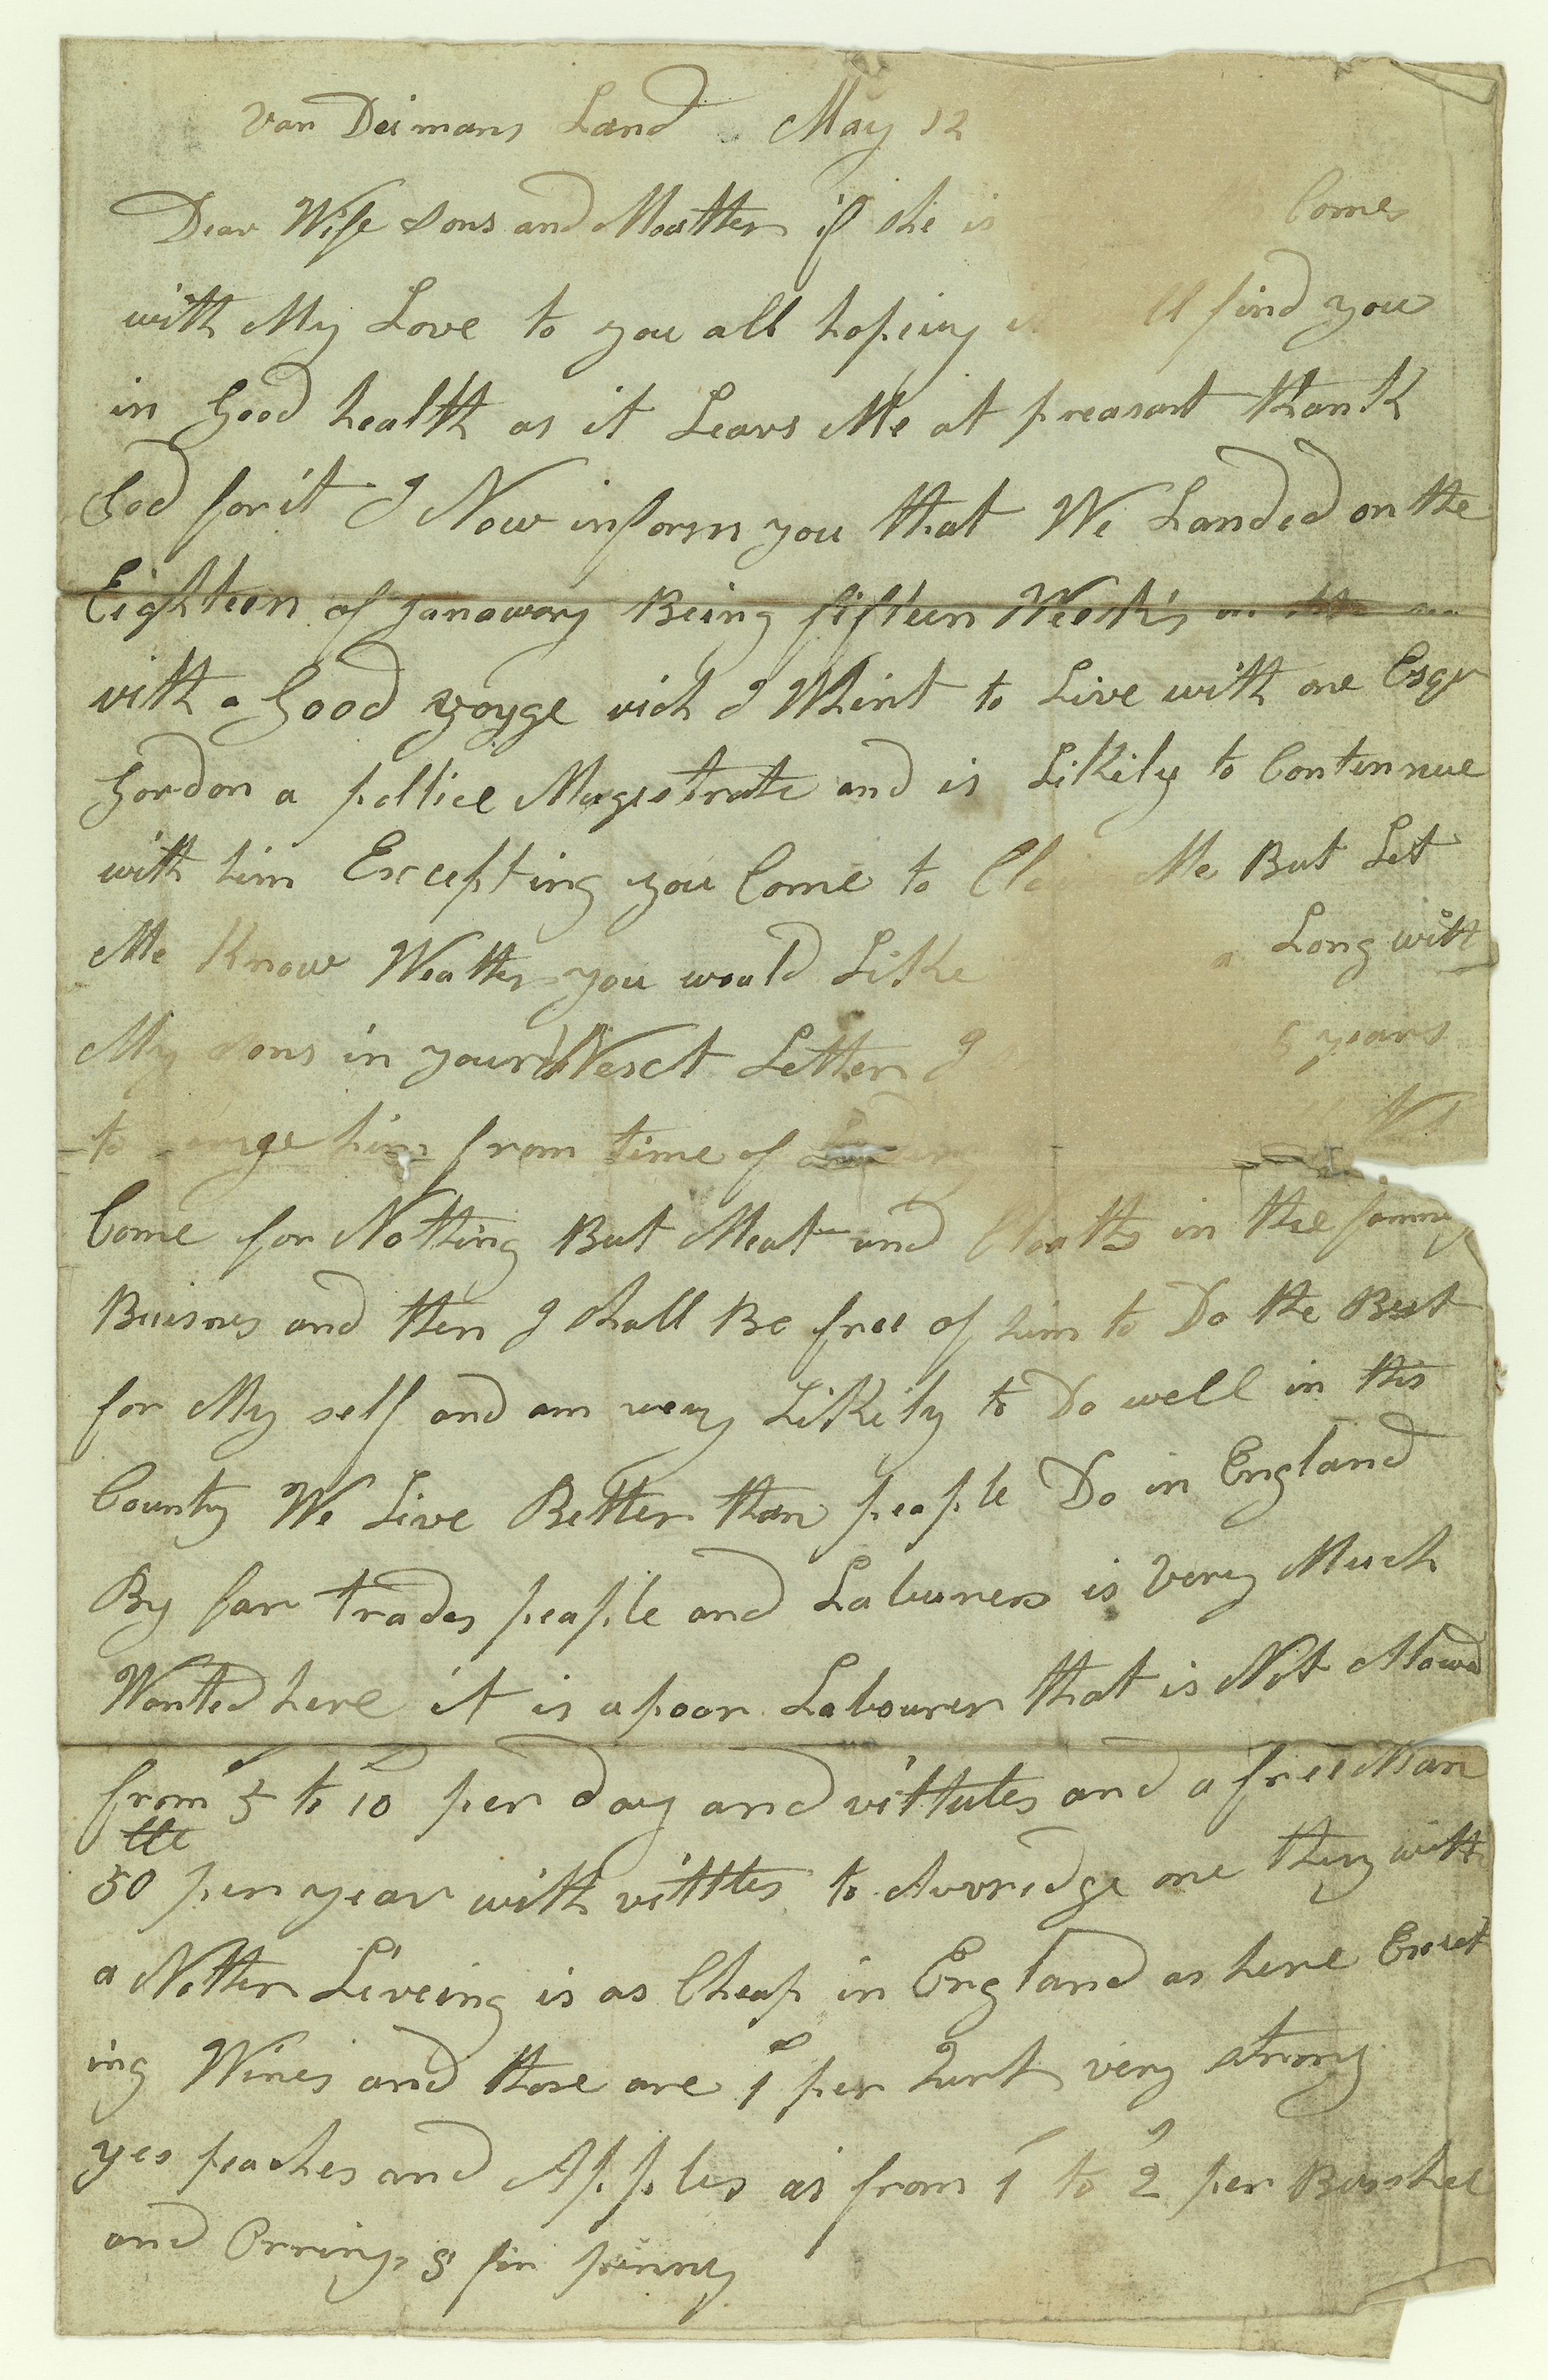 Van Deimans Land May 12
Dear Wife Sons and Moatter if she is Comes
with My Love to you all hopeing find you
in Good health as it Leavs Me at preasant thank
God for it I Now inform you that We Landed on the
Eighteen of Janawary Being fifteen Weeks on the sea
vith a Good voyge vich I Whint to Live with one Esqr
Gordon a pollice Magestrate and is Likily to Contennue
with him Excepting you Come to Me But Let
Me Know Weatter you would Like Long with
My sons in your Nesct Letter I years
to him from time of
Come for Notting But Meat and Cloatts in the
Buisnes and then I shall Be free of him to Do the Best
for My self and am very Likily to Do well in this
County We Live Better than people Do in England
By far trades peaple and Laburers is Very Much
Wanted here it is a poor Labourer that is Not Alowd
from 5 to 10 per day and vittutes and a free Man
50 per year with vittles to Avvredge one thing with
a Notter Liveing is as Cheap in England as here Excet
ing Wines and those are 1 per Qurt very strong
yes peaches and Apples as from 1 to 2 per Bushel
and Orrings 8 for penny